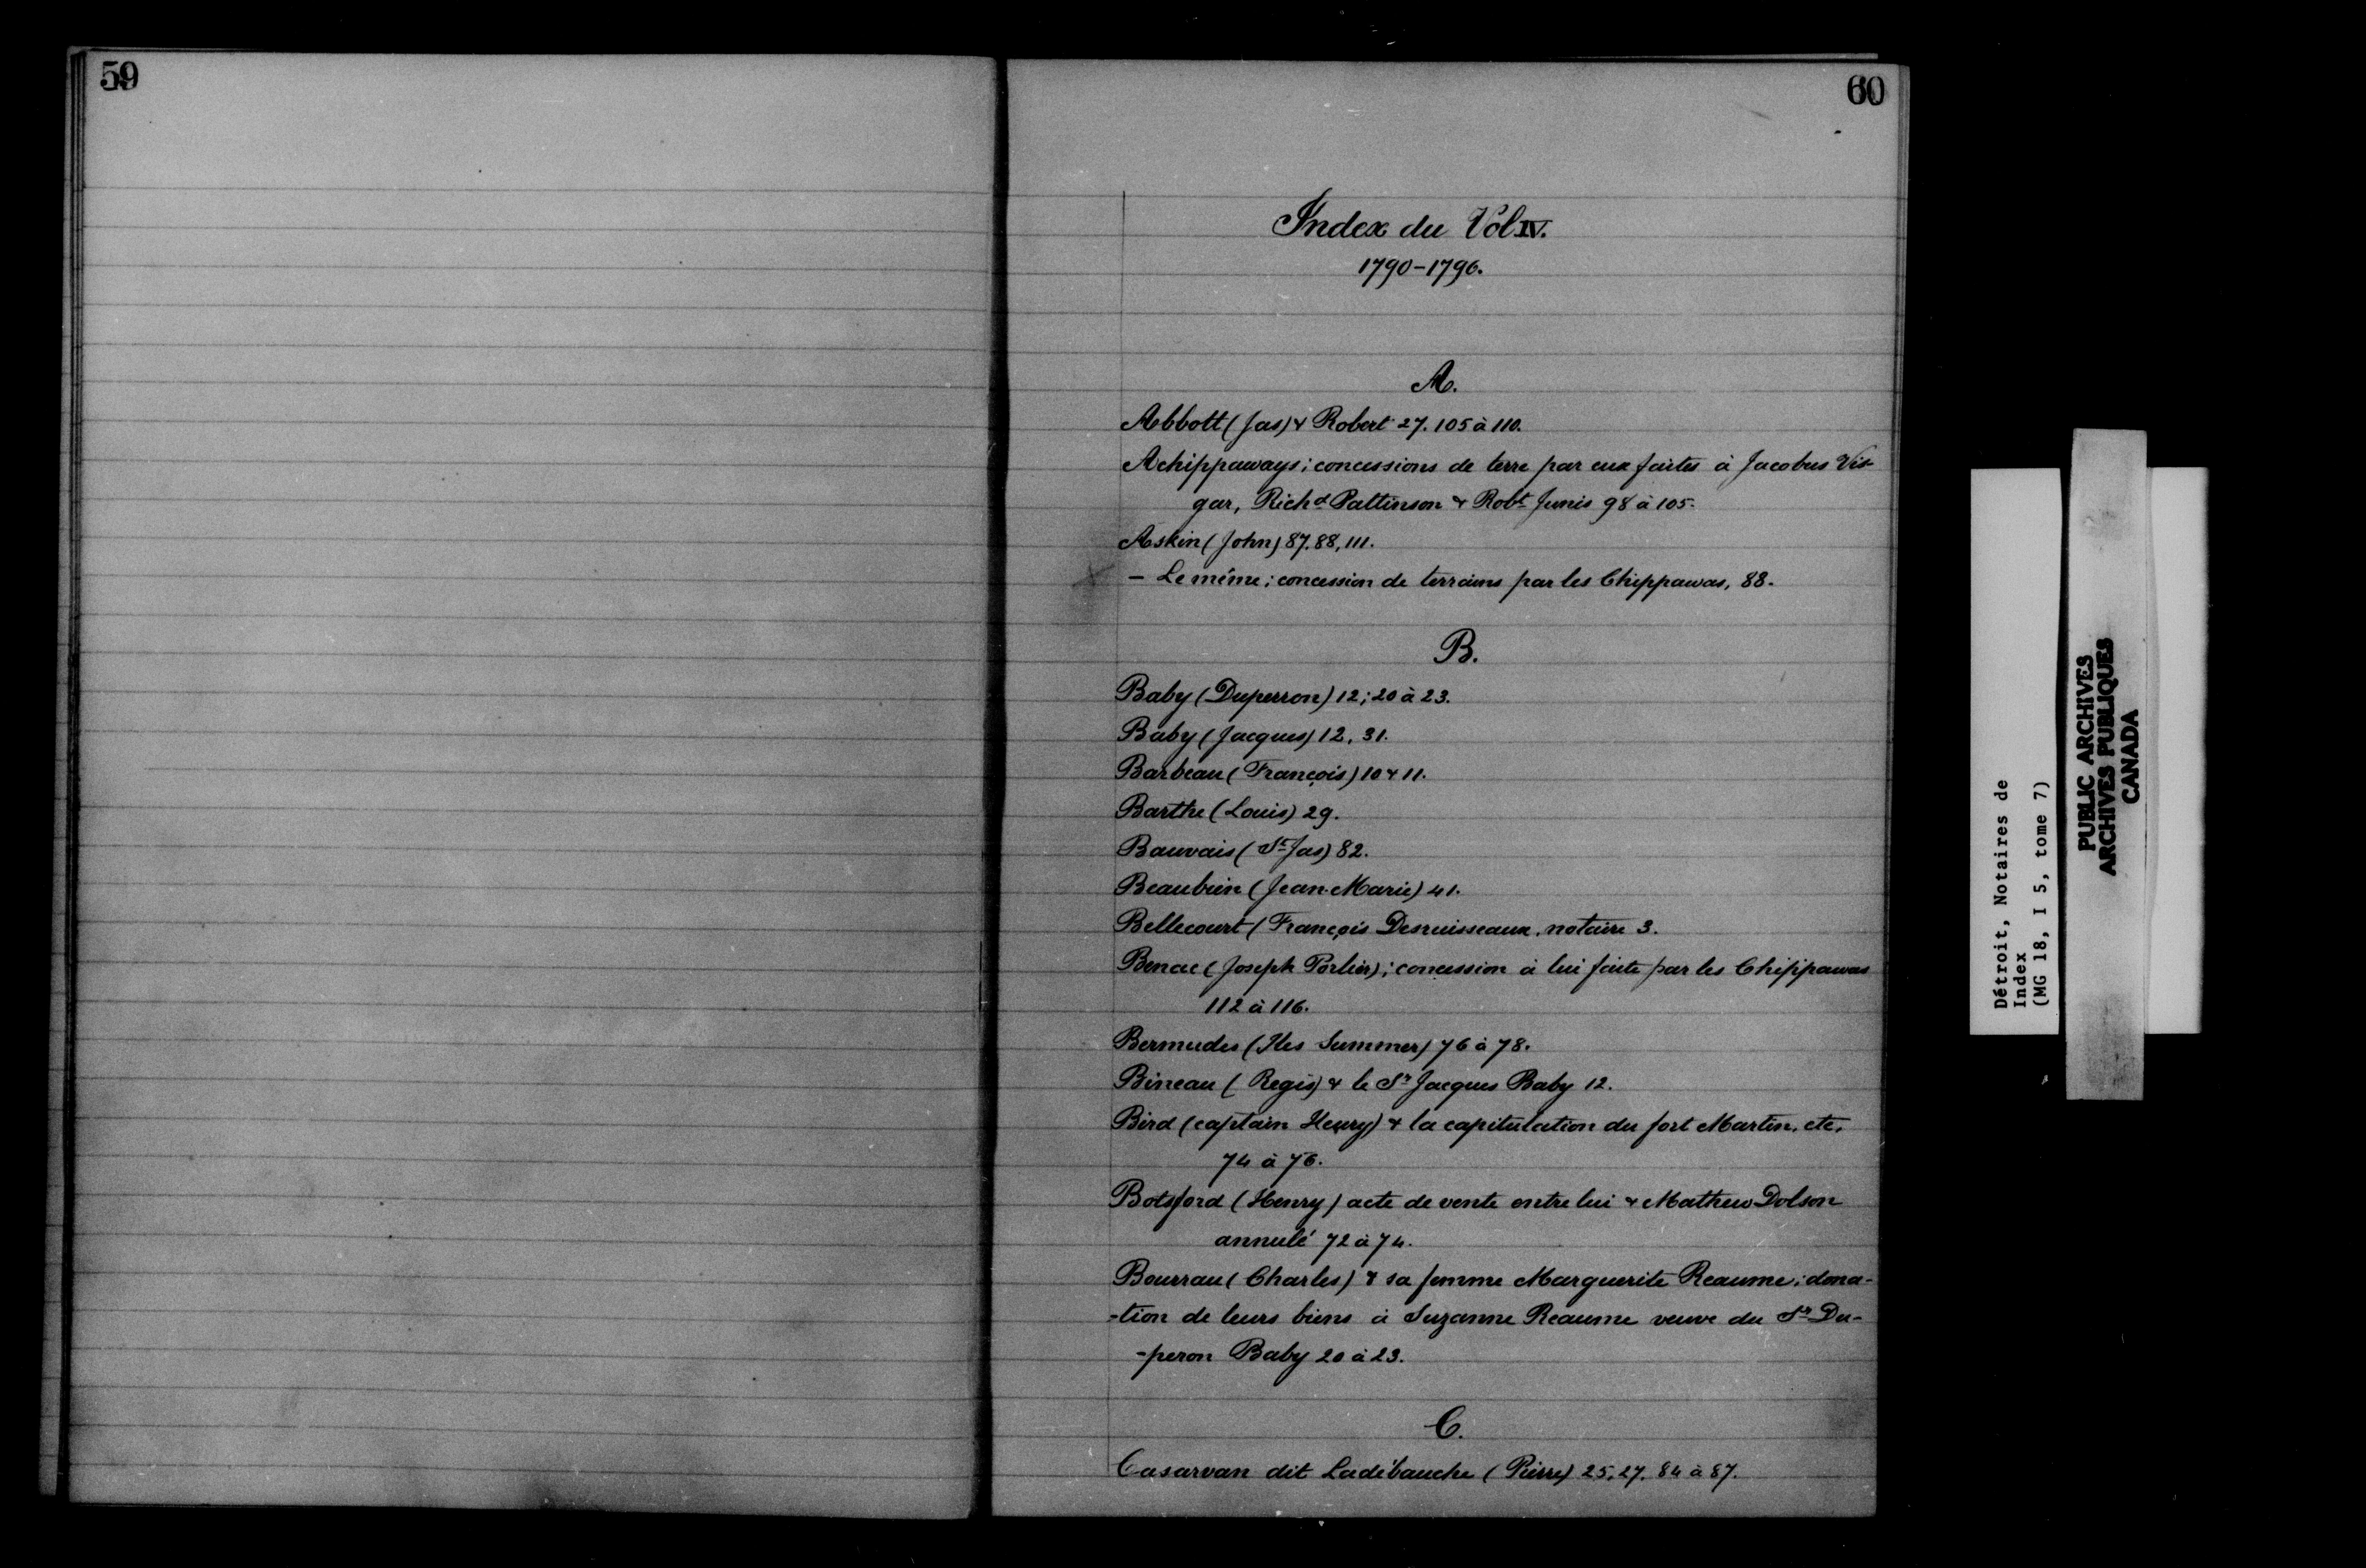 59
60
Index du Vol IV.
1790-1796.
A.
Abbott (Jas) & Robert 27. 105 à 110.
Achippaways; concessions de terre par eux faites à Jacobus Vis-
gar, Richd Pattinson & Robt Junis 98 à 105.
Askin (John) 87. 88, 111.
- Le même; concession de terrains par les Chippawas, 88.
B.
Baby (Duperron) 12; 20 à 23.
Baby (Jacques) 12, 31.
Barbeau (François) 10 & 11.
Barthe (Louis) 29.
Bauvais (St Jas) 82.
Beaubien (Jean-Marie) 41.
Bellecourt (François Desruisseaux, notaire 3.
Benac (Joseph Porlier); concession à lui faite par les Chippawas
112 à 116.
Bermudes (Iles Summer) 76 à 78.
Bineau (Regis) & le Sr Jacques Baby 12.
Bird (captain Henry) & la capitulation du fort Martin, etc,
74 à 76.
Botsford (Henry) acte de vente entre lui & Mathew Dolson
annulé 72 à 74.
Bourrau (Charles) & sa femme Marguerite Reaume; dona-
-tion de leurs biens à Suzanne Reaume veuve du Sr Du-
-peron Baby 20 à 23.
C.
Casarvan dit Ladébauche (Pierre) 25, 27. 84 à 87.
Détroit, Notaires de
Index
(MG 18, I 5, tome 7)
PUBLIC ARCHIVES
ARCHIVES PUBLIQUES
CANADA